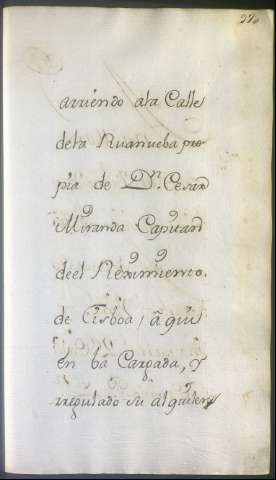 220
arriendo ala Calle
dela Nuanueba pro-
pia de Dn. Cesar
Miranda Capitan
deel Reximiento.
de Lisboa, â quii
en bâ Cargada, y
rregulado su alquiler